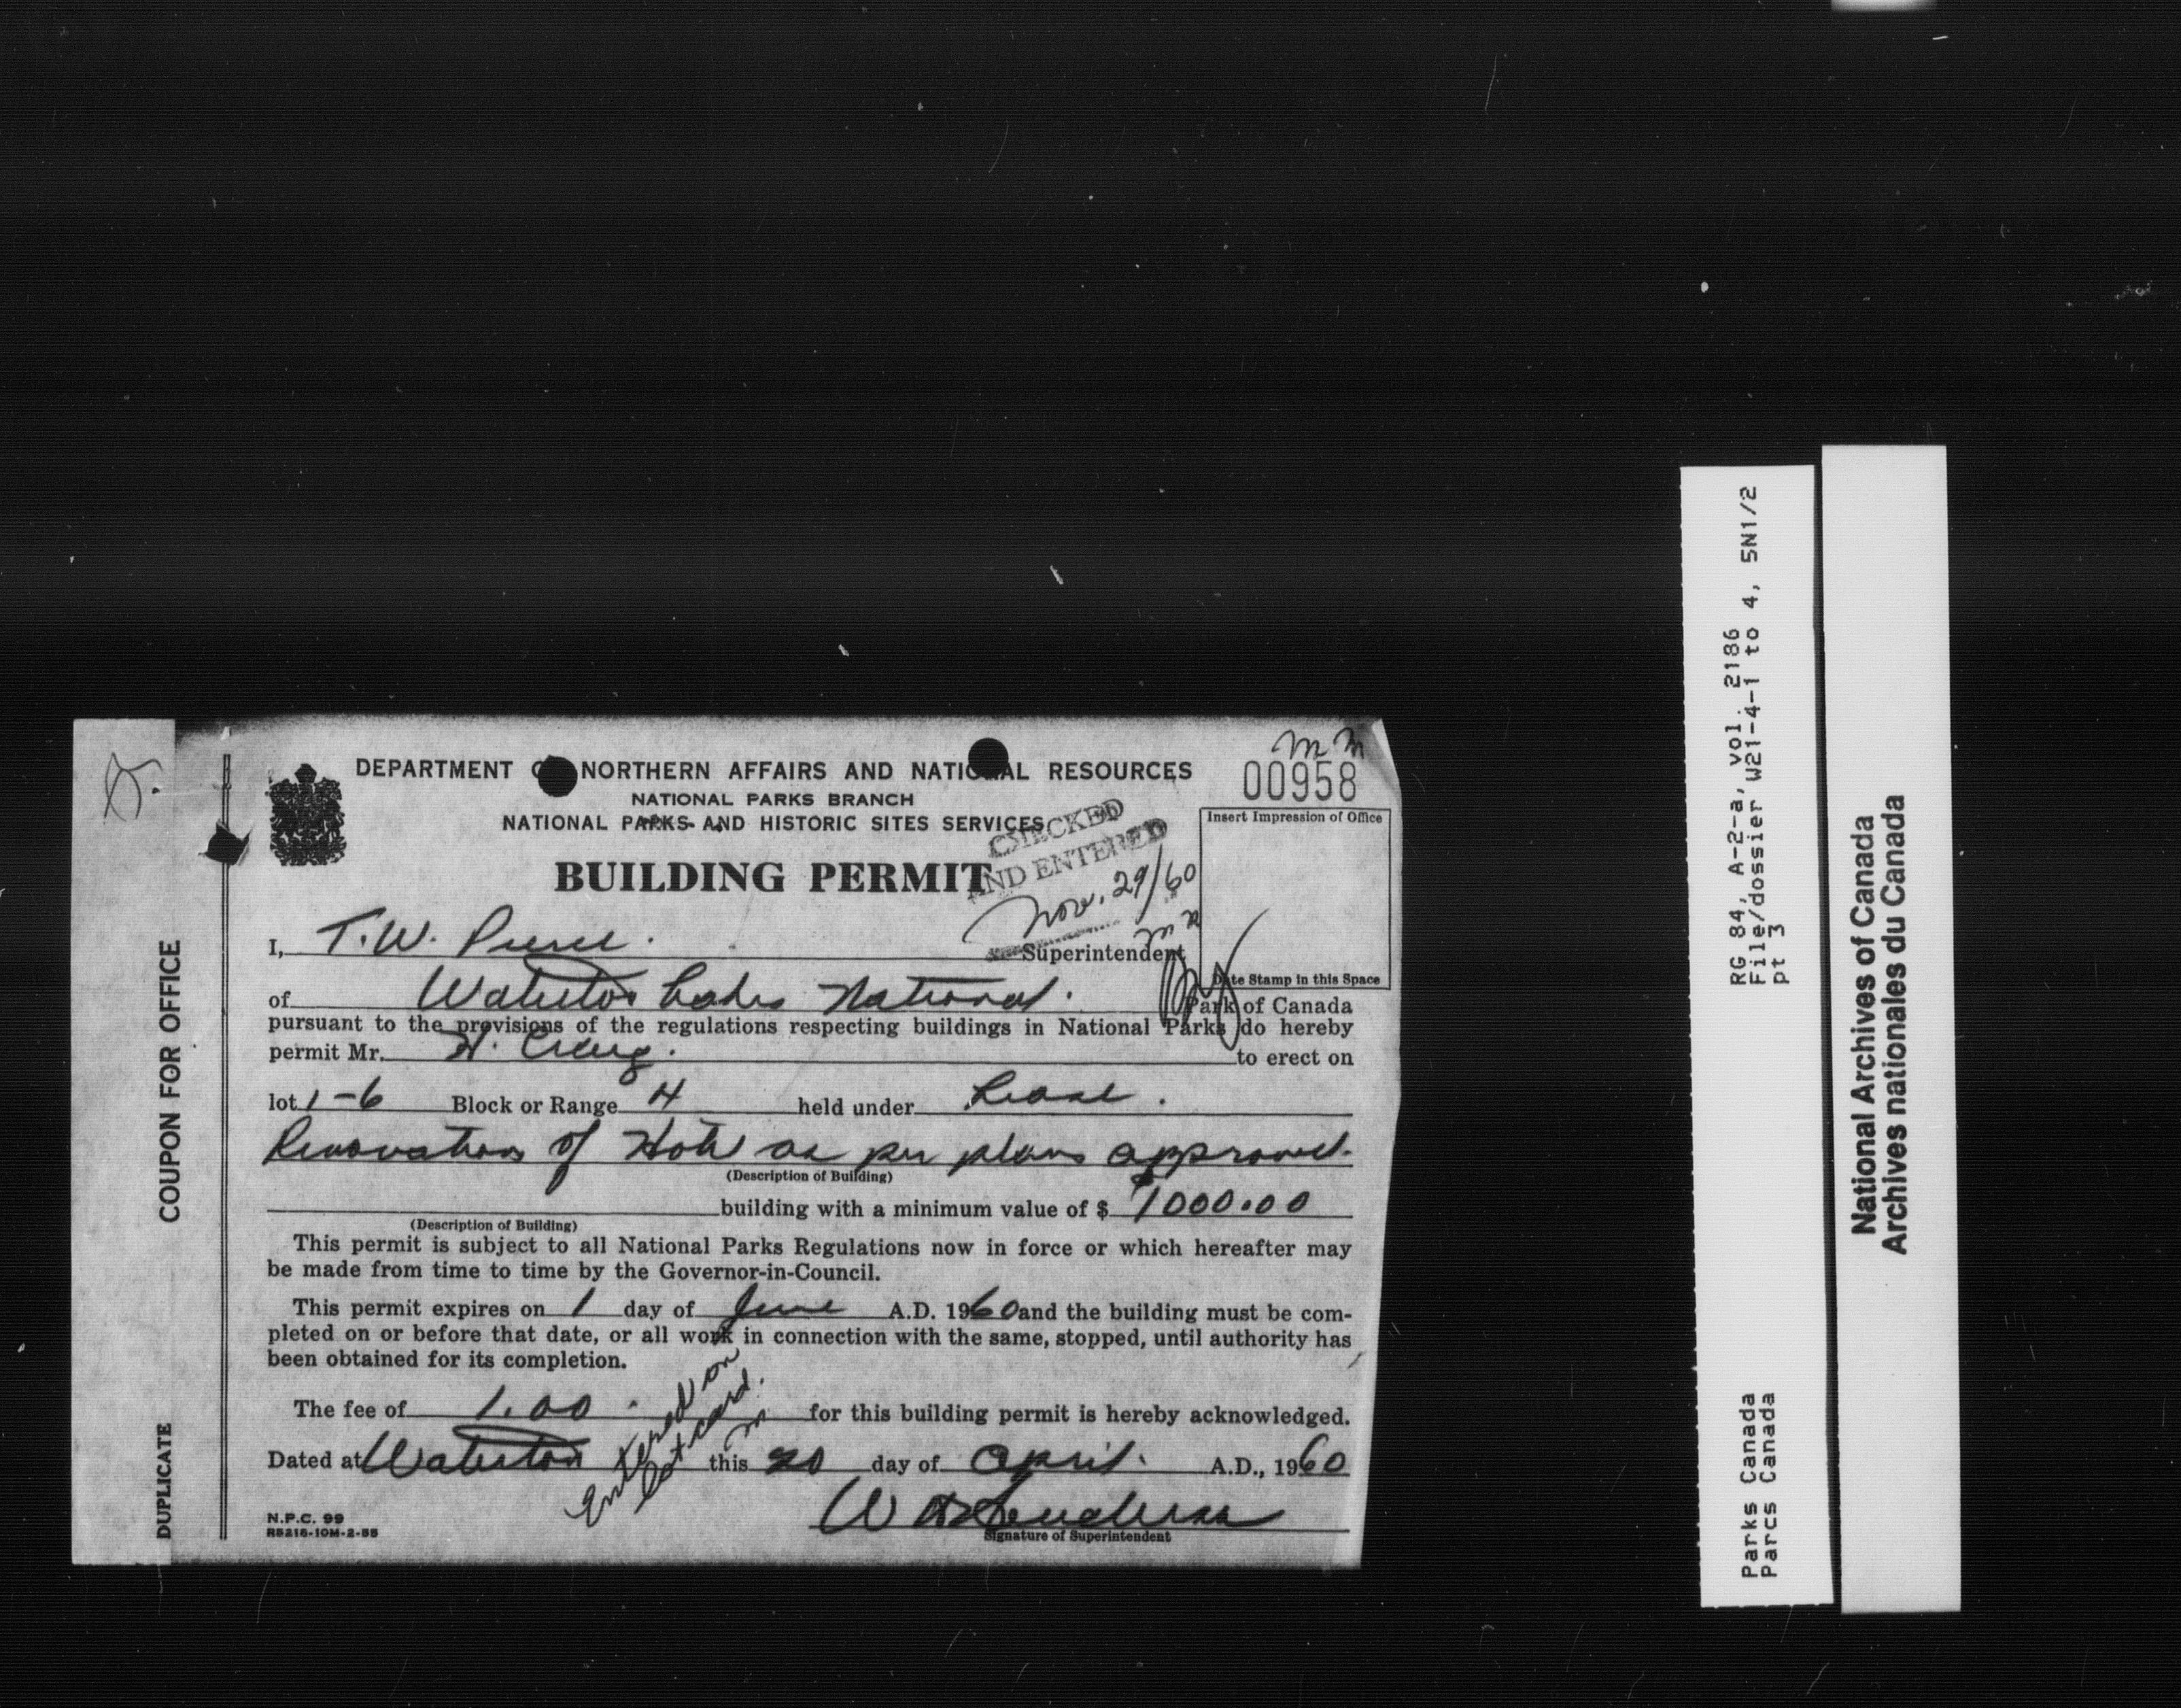 DEPARTMENT OF NORTHERN AFFAIRS AND NATIONAL RESOURCES
NATIONAL PARKS BRANCH
NATIONAL PARKS AND HISTORIC SITES SERVICES
BUILDING PERMIT
m m
00958
Insert Impression of Office
Date Stamp in this Space
CHECKED
AND ENTERED
Nov. 29/60
I, T.W. Pierce. Superintendent
of Waterton Lakes National. Park of Canada
pursuant to the provisions of the regulations respecting buildings in National Parks do hereby
permit Mr. H. Craig. to erect on
lot 1-6 Block or Range 4 held under Lease.
Renovation of Hotel as per plans approved.
(Description of Building)
building with a minimum value of $ 1000.00
(Description of Building)
This permit is subject to all National Parks Regulations now in force or which hereafter may
be made from time to time by the Governor-in-Council.
This permit expires on 1 day of June A.D. 1960 and the building must be com-
pleted on or before that date, or all work in connection with the same, stopped, until authority has
been obtained for its completion.
The fee of 1.00. for this building permit is hereby acknowledged.
Entered on
lot card.
m
Dated at Waterton this 20 day of April. A.D., 1960
Signature of Superintendent
N.P.C. 99
R5215-10M-2-55
COUPON FOR OFFICE
DUPLICATE
RG 84, A-2-a, vol. 2186
File/dossier W21-4-1 to 4, 5N1/2
pt 3
Parks Canada
Parcs Canada
National Archives of Canada
Archives nationales du Canada